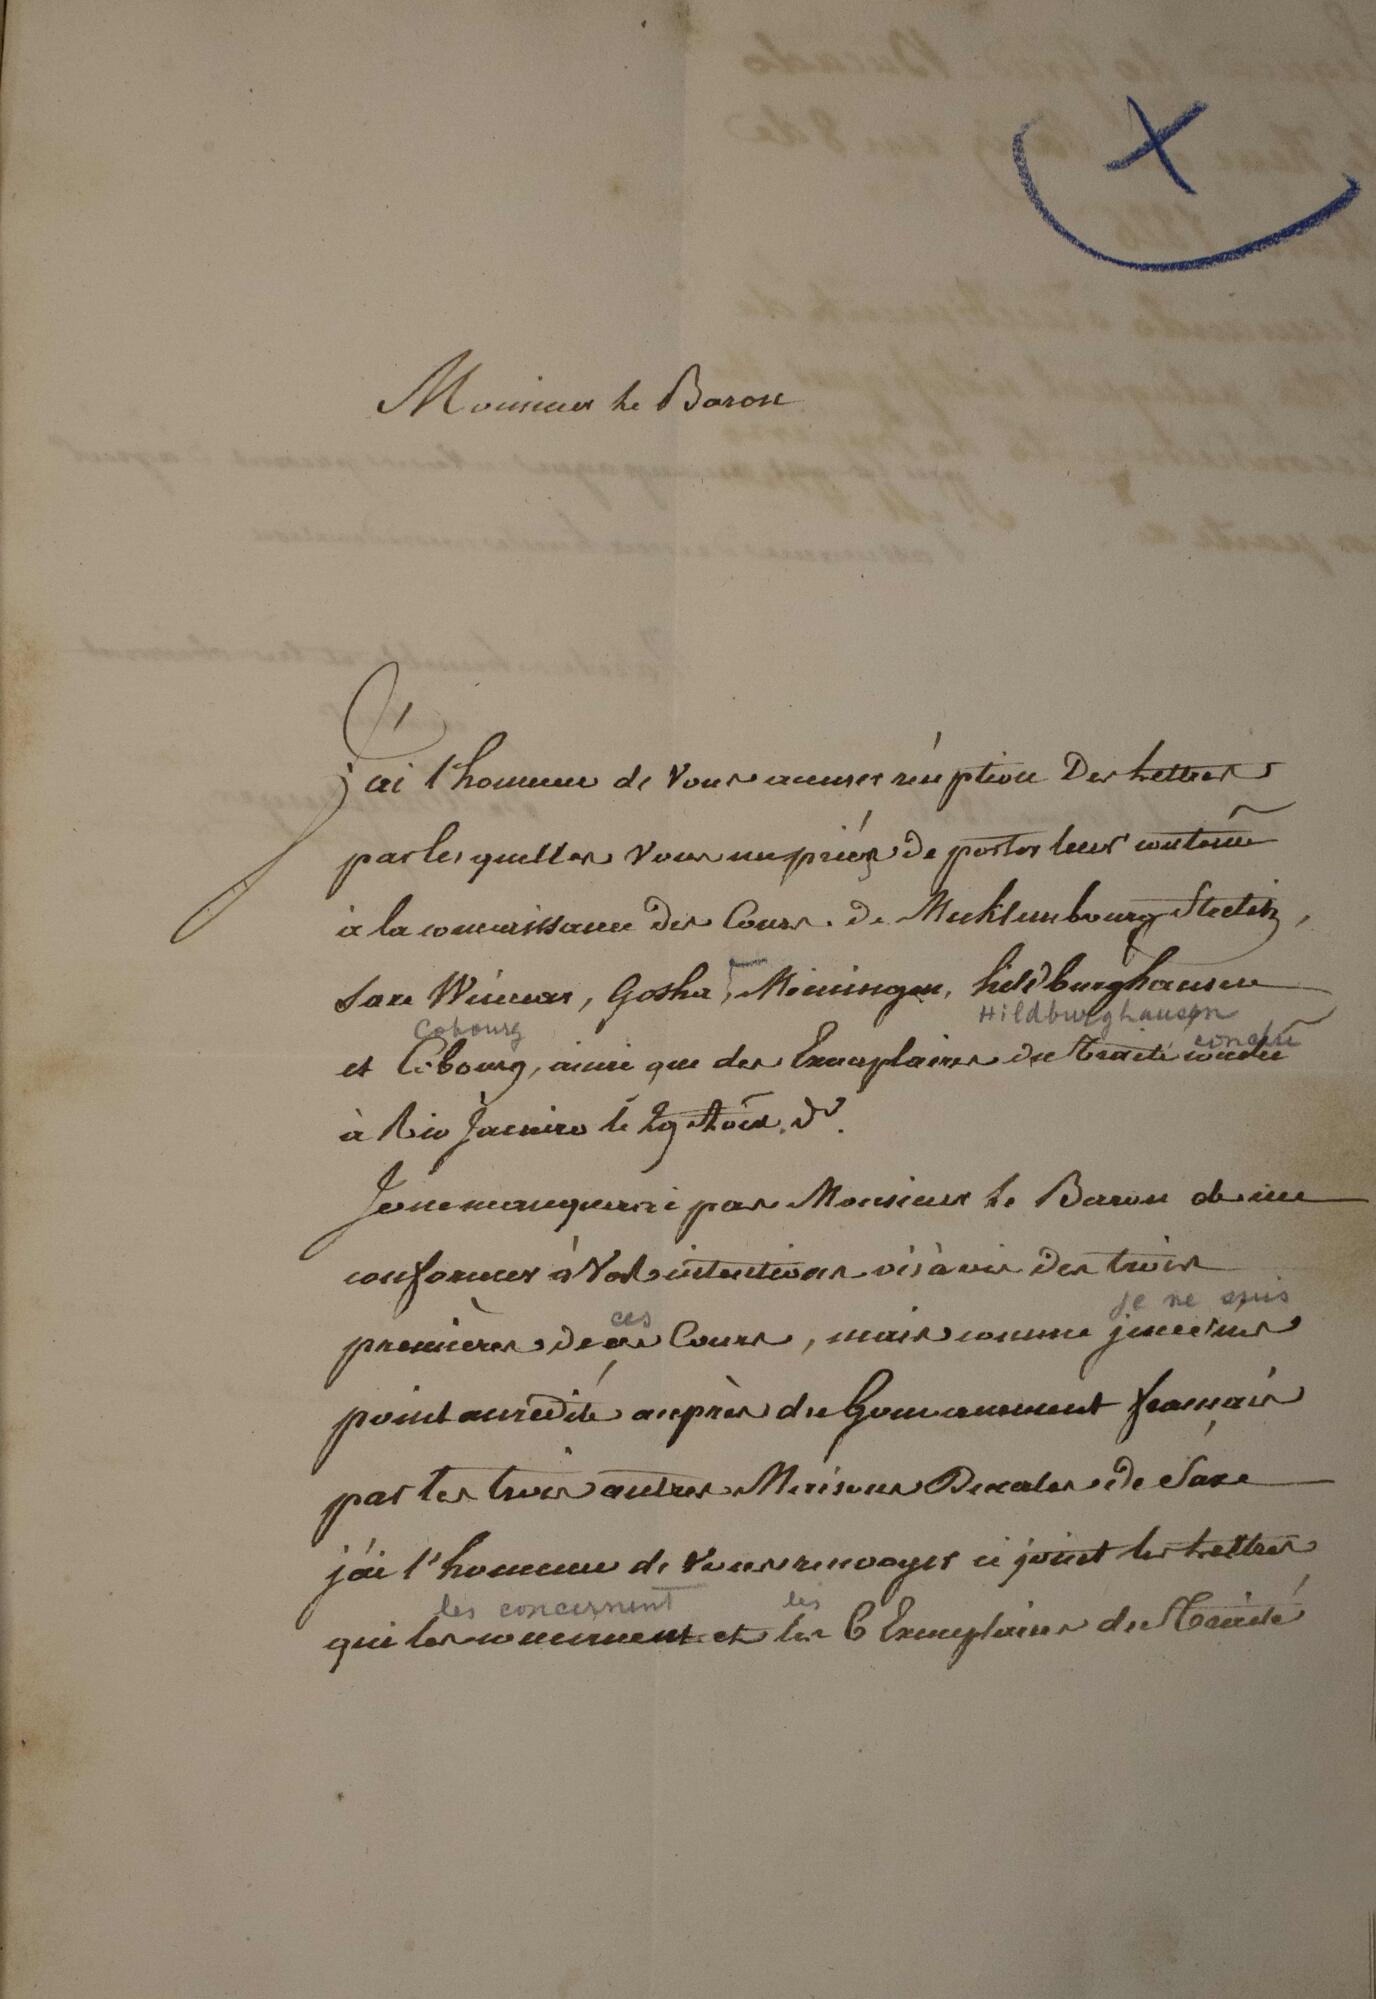 Monsieur le Baron
J'ai l'honneur de Vous accuser réception des Lettres
par les quelles Vous me priéz de porter leur contenu
à la connaissance des Cours de Mecklembourg Strelitz,
Saxe Weimar, Gotha, Meiningen, hildburghausen
Hildburghausen
Cobourg
conclu
et Cobourg, ainsi que des Exemplaires du Traité conclu
à Rio Janeiro le 29 Août. dr.
Je ne manquerai pas Monsieur le Baron de me
conformer à Vos intentions vis à vis des trois
ces
je ne suis
premières de ces Cours, mais comme je ne suis
point accrédité auprès du Gouvernement français
par les trois autres Maisons Ducales de Saxe
j'ai l'honneur de Vous renvoyer ci joint les Lettres
les concernent
les
qui les concernent et les 6 Exemplaires du Traité